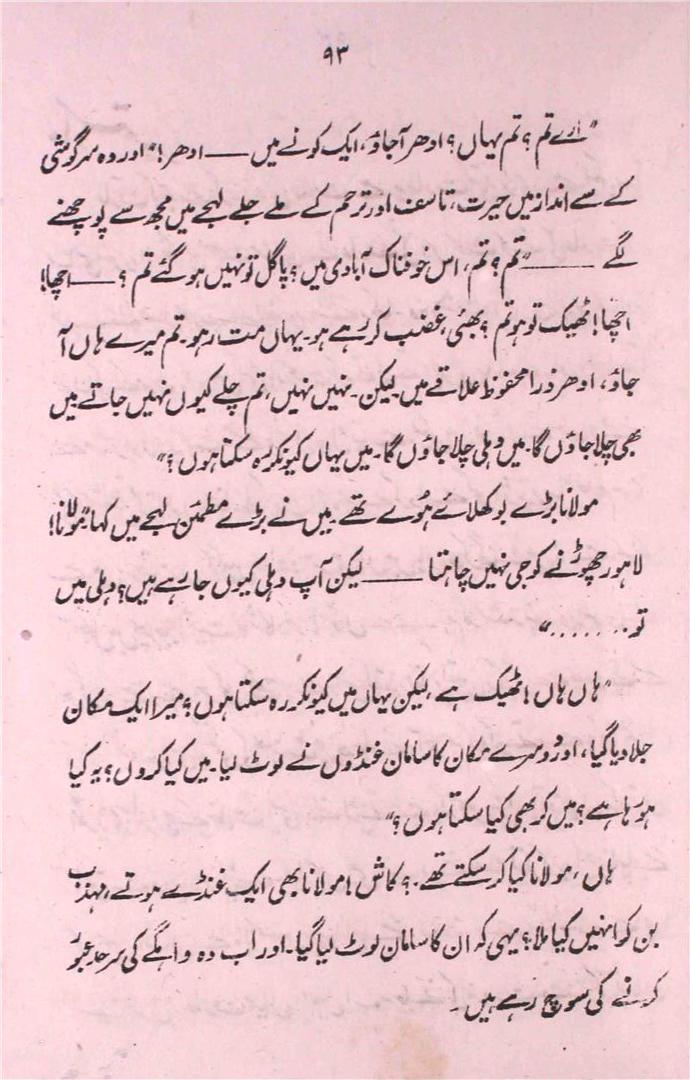 ۹۳
"ارے تم؟ تم یہاں؟ ادھر آجاؤ، ایک کونے میں ــــ ادھر!" اور وہ سرگوشی
کے سے انداز میں حیرت، تاسف اور ترحم کے ملے جلے لہجے میں مجھ سے پوچھنے
لگے ــــــ "تم؟ تم، اس خوفناک آبادی میں؟ پاگل تو نہیں ہو گئے تم؟ ــــ اچھا!
اچھا! ٹھیک تو ہو تم؟ بھئی، غضب کر رہے ہو۔ یہاں مت رہو۔ تم میرے ہاں آ
جاؤ، ادھر ذرا محفوظ علاقے میں۔ لیکن۔ نہیں نہیں، تم چلے کیوں نہیں جاتے میں
بھی چلا جاؤں گا۔ میں دہلی چلا جاؤں گا۔ میں یہاں کیونکر رہ سکتا ہوں؟"
مولانا بڑے بوکھلائے ہوئے تھے۔ میں نے بڑے مطمئن لہجے میں کہا، "مولانا!
لاہور چھوڑنے کو جی نہیں چاہتا ــــــ لیکن آپ دہلی کیوں جا رہے ہیں؟ دہلی میں
تو........"
"ہاں ہاں! ٹھیک ہے، لیکن یہاں میں کیونکر رہ سکتا ہوں؟ میرا ایک مکان
جلا دیا گیا، اور دوسرے مکان کا سامان غنڈوں نے لوٹ لیا۔ میں کیا کروں؟ یہ کیا
ہو رہا ہے؟ میں کر بھی کیا سکتا ہوں؟"
ہاں، مولانا کیا کر سکتے تھے۔؟ کاش! مولانا بھی ایک غنڈے ہوتے، مہذب
بن کر انہیں کیا ملا؟ یہی کہ ان کا سامان لوٹ لیا گیا۔ اور اب وہ واہگے کی سرحد عبور
کرنے کی سوچ رہے ہیں۔